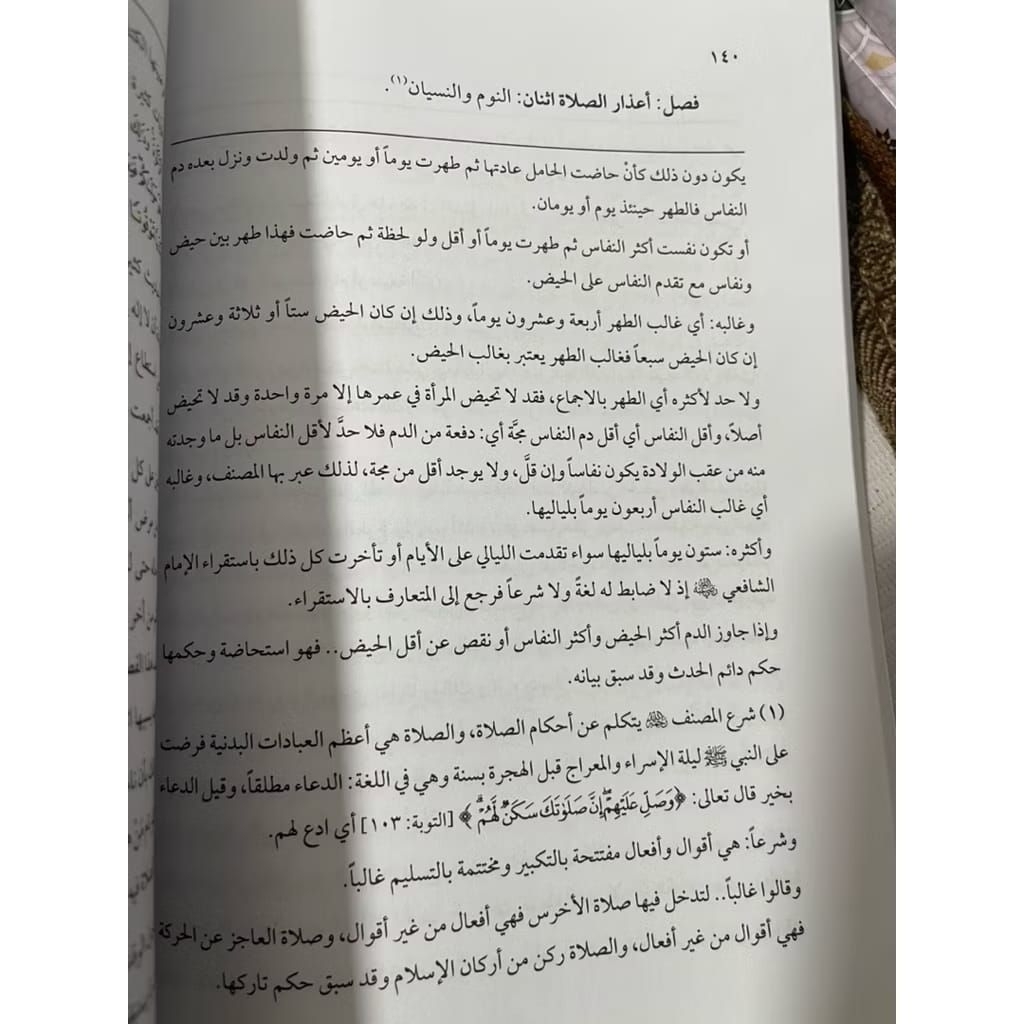 ١٤٠
فصل: أعذار الصلاة اثنان: النوم والنسيان(١).
يكون دون ذلك كأنْ حاضت الحامل عادتها ثم طهرت يوماً أو يومين ثم ولدت ونزل بعده دم
النفاس فالطهر حينئذ يوم أو يومان.
أو تكون نفست أكثر النفاس ثم طهرت يوماً أو أقل ولو لحظة ثم حاضت فهذا طهر بين حيض
ونفاس مع تقدم النفاس على الحيض.
وغالبه: أي غالب الطهر أربعة وعشرون يوماً، وذلك إن كان الحيض ستاً أو ثلاثة وعشرون
إن كان الحيض سبعاً فغالب الطهر يعتبر بغالب الحيض.
ولا حد لأكثره أي الطهر بالاجماع، فقد لا تحيض المرأة في عمرها إلا مرة واحدة وقد لا تحيض
أصلاً، وأقل النفاس أي أقل دم النفاس مجَّة أي: دفعة من الدم فلا حدَّ لأقل النفاس بل ما وجدته
منه من عقب الولادة يكون نفاساً وإن قلَّ، ولا يوجد أقل من مجة، لذلك عبر بها المصنف، وغالبه
أي غالب النفاس أربعون يوماً بلياليها.
وأكثره: ستون يوماً بلياليها سواء تقدمت الليالي على الأيام أو تأخرت كل ذلك باستقراء الإمام
الشافعي إذ لا ضابط له لغةً ولا شرعاً فرجع إلى المتعارف بالاستقراء.
وإذا جاوز الدم أكثر الحيض وأكثر النفاس أو نقص عن أقل الحيض.. فهو استحاضة وحكمها
حكم دائم الحدث وقد سبق بيانه.
(١) شرع المصنف يتكلم عن أحكام الصلاة، والصلاة هي أعظم العبادات البدنية فرضت
على النبي ﷺ ليلة الإسراء والمعراج قبل الهجرة بسنة وهي في اللغة: الدعاء مطلقاً، وقيل الدعاء
بخير قال تعالى: ﴿وَصَلِّ عَلَيْهِمْ إِنَّ صَلَوٰتَكَ سَكَنٌ لَّهُمْ﴾ [التوبة: ١٠٣] أي ادع لهم.
وشرعاً: هي أقوال وأفعال مفتتحة بالتكبير ومختتمة بالتسليم غالباً.
وقالوا غالباً.. لتدخل فيها صلاة الأخرس فهي أفعال من غير أقوال، وصلاة العاجز عن الحركة
فهي أقوال من غير أفعال، والصلاة ركن من أركان الإسلام وقد سبق حكم تاركها.